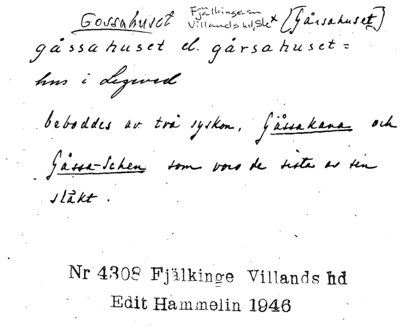 Gossahuset Fjälkinge sn Villands hd, Sk [Gårsahuset]
gåssahuset el. gårsahuset =
hus i Legeved
beboddes av två syskon, Gåssakana och
Gåssa-Schen som voro de sista av sin
släkt.
Nr 4308 Fjälkinge Villands hd
Edit Hammelin 1946